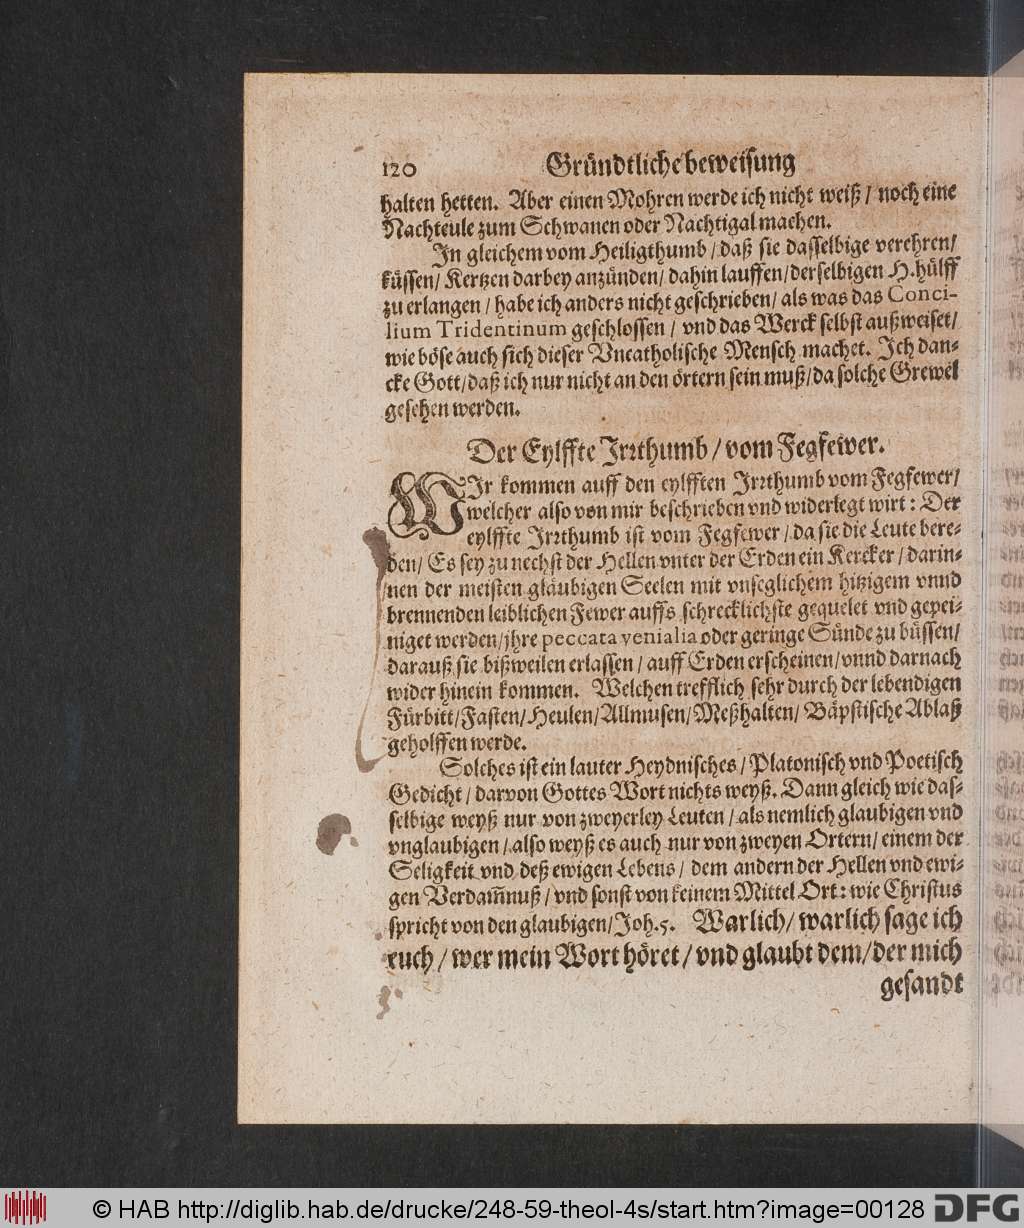 120 Gründtliche beweisung
halten hetten. Aber einen Mohren werde ich nicht weiß / noch eine
Nachteule zum Schwanen oder Nachtigal machen.
In gleichem vom Heiligthumb / daß sie dasselbige verehren/
küssen/ Kertzen darbey anzünden/ dahin lauffen/ derselbigen H. hülff
zu erlangen / habe ich anders nicht geschrieben/ als was das Conci-
lium Tridentinum geschlossen / vnd das Werck selbst außweiset/
wie böse auch sich dieser Vncatholische Mensch machet. Ich dan-
cke Gott/ daß ich nur nicht an den örtern sein muß/ da solche Grewel
gesehen werden.
Der Eylffte Irrthumb / vom Fegfewer.
WIr kommen auff den eylfften Irrthumb vom Fegfewer/
welcher also von mir beschrieben vnd widerlegt wirt: Der
eylffte Irrthumb ist vom Fegfewer / da sie die Leute bere-
den/ Es sey zu nechst der Hellen vnter der Erden ein Kercker / darin-
nen der meisten gläubigen Seelen mit vnseglichem hitzigem vnnd
brennenden leiblichen Fewer auffs schrecklichste gequelet vnd gepei-
niget werden/ jhre peccata venialia oder geringe Sünde zu büssen/
darauß sie bißweilen erlassen / auff Erden erscheinen/ vnnd darnach
wider hinein kommen. Welchen trefflich sehr durch der lebendigen
Fürbitt/ Fasten/ Heulen/ Allmusen/ Meßhalten/ Bäpstische Ablaß
geholffen werde.
Solches ist ein lauter Heydnisches / Platonisch vnd Poetisch
Gedicht / darvon Gottes Wort nichts weyß. Dann gleich wie das-
selbige weyß nur von zweyerley Leuten / als nemlich glaubigen vnd
vnglaubigen / also weyß es auch nur von zweyen Ortern/ einem der
Seligkeit vnd deß ewigen Lebens / dem andern der Hellen vnd ewi-
gen Verdam̃nuß / vnd sonst von keinem Mittel Ort: wie Christus
spricht von den glaubigen/ Joh. 5. Warlich/ warlich sage ich
euch / wer mein Wort höret / vnd glaubt dem / der mich
gesandt
© HAB http://diglib.hab.de/drucke/248-59-theol-4s/start.htm?image=00128 DFG